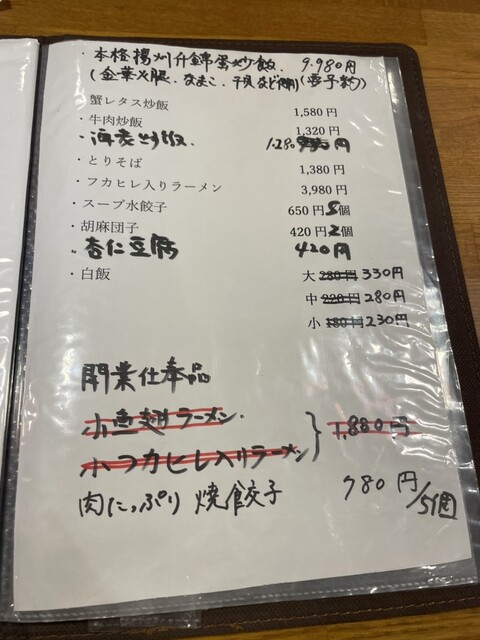 ・本格揚州什錦蛋炒飯 9,980円
(金華火腿、なまこ、干貝など使用)(要予約)
蟹レタス炒飯 1,580円
・牛肉炒飯 1,320円
・海老炒飯 1,280円
・とりそば 1,380円
・フカヒレ入りラーメン 3,980円
・スープ水餃子 650円 5個
・胡麻団子 420円 2個
・杏仁豆腐 420円
・白飯 大 280円 330円
中 220円 280円
小 180円 230円
開業仕奉品
小魚翅ラーメン
小フカヒレ入りラーメン } 1,880円
肉にっぷり 焼餃子 980円/5個